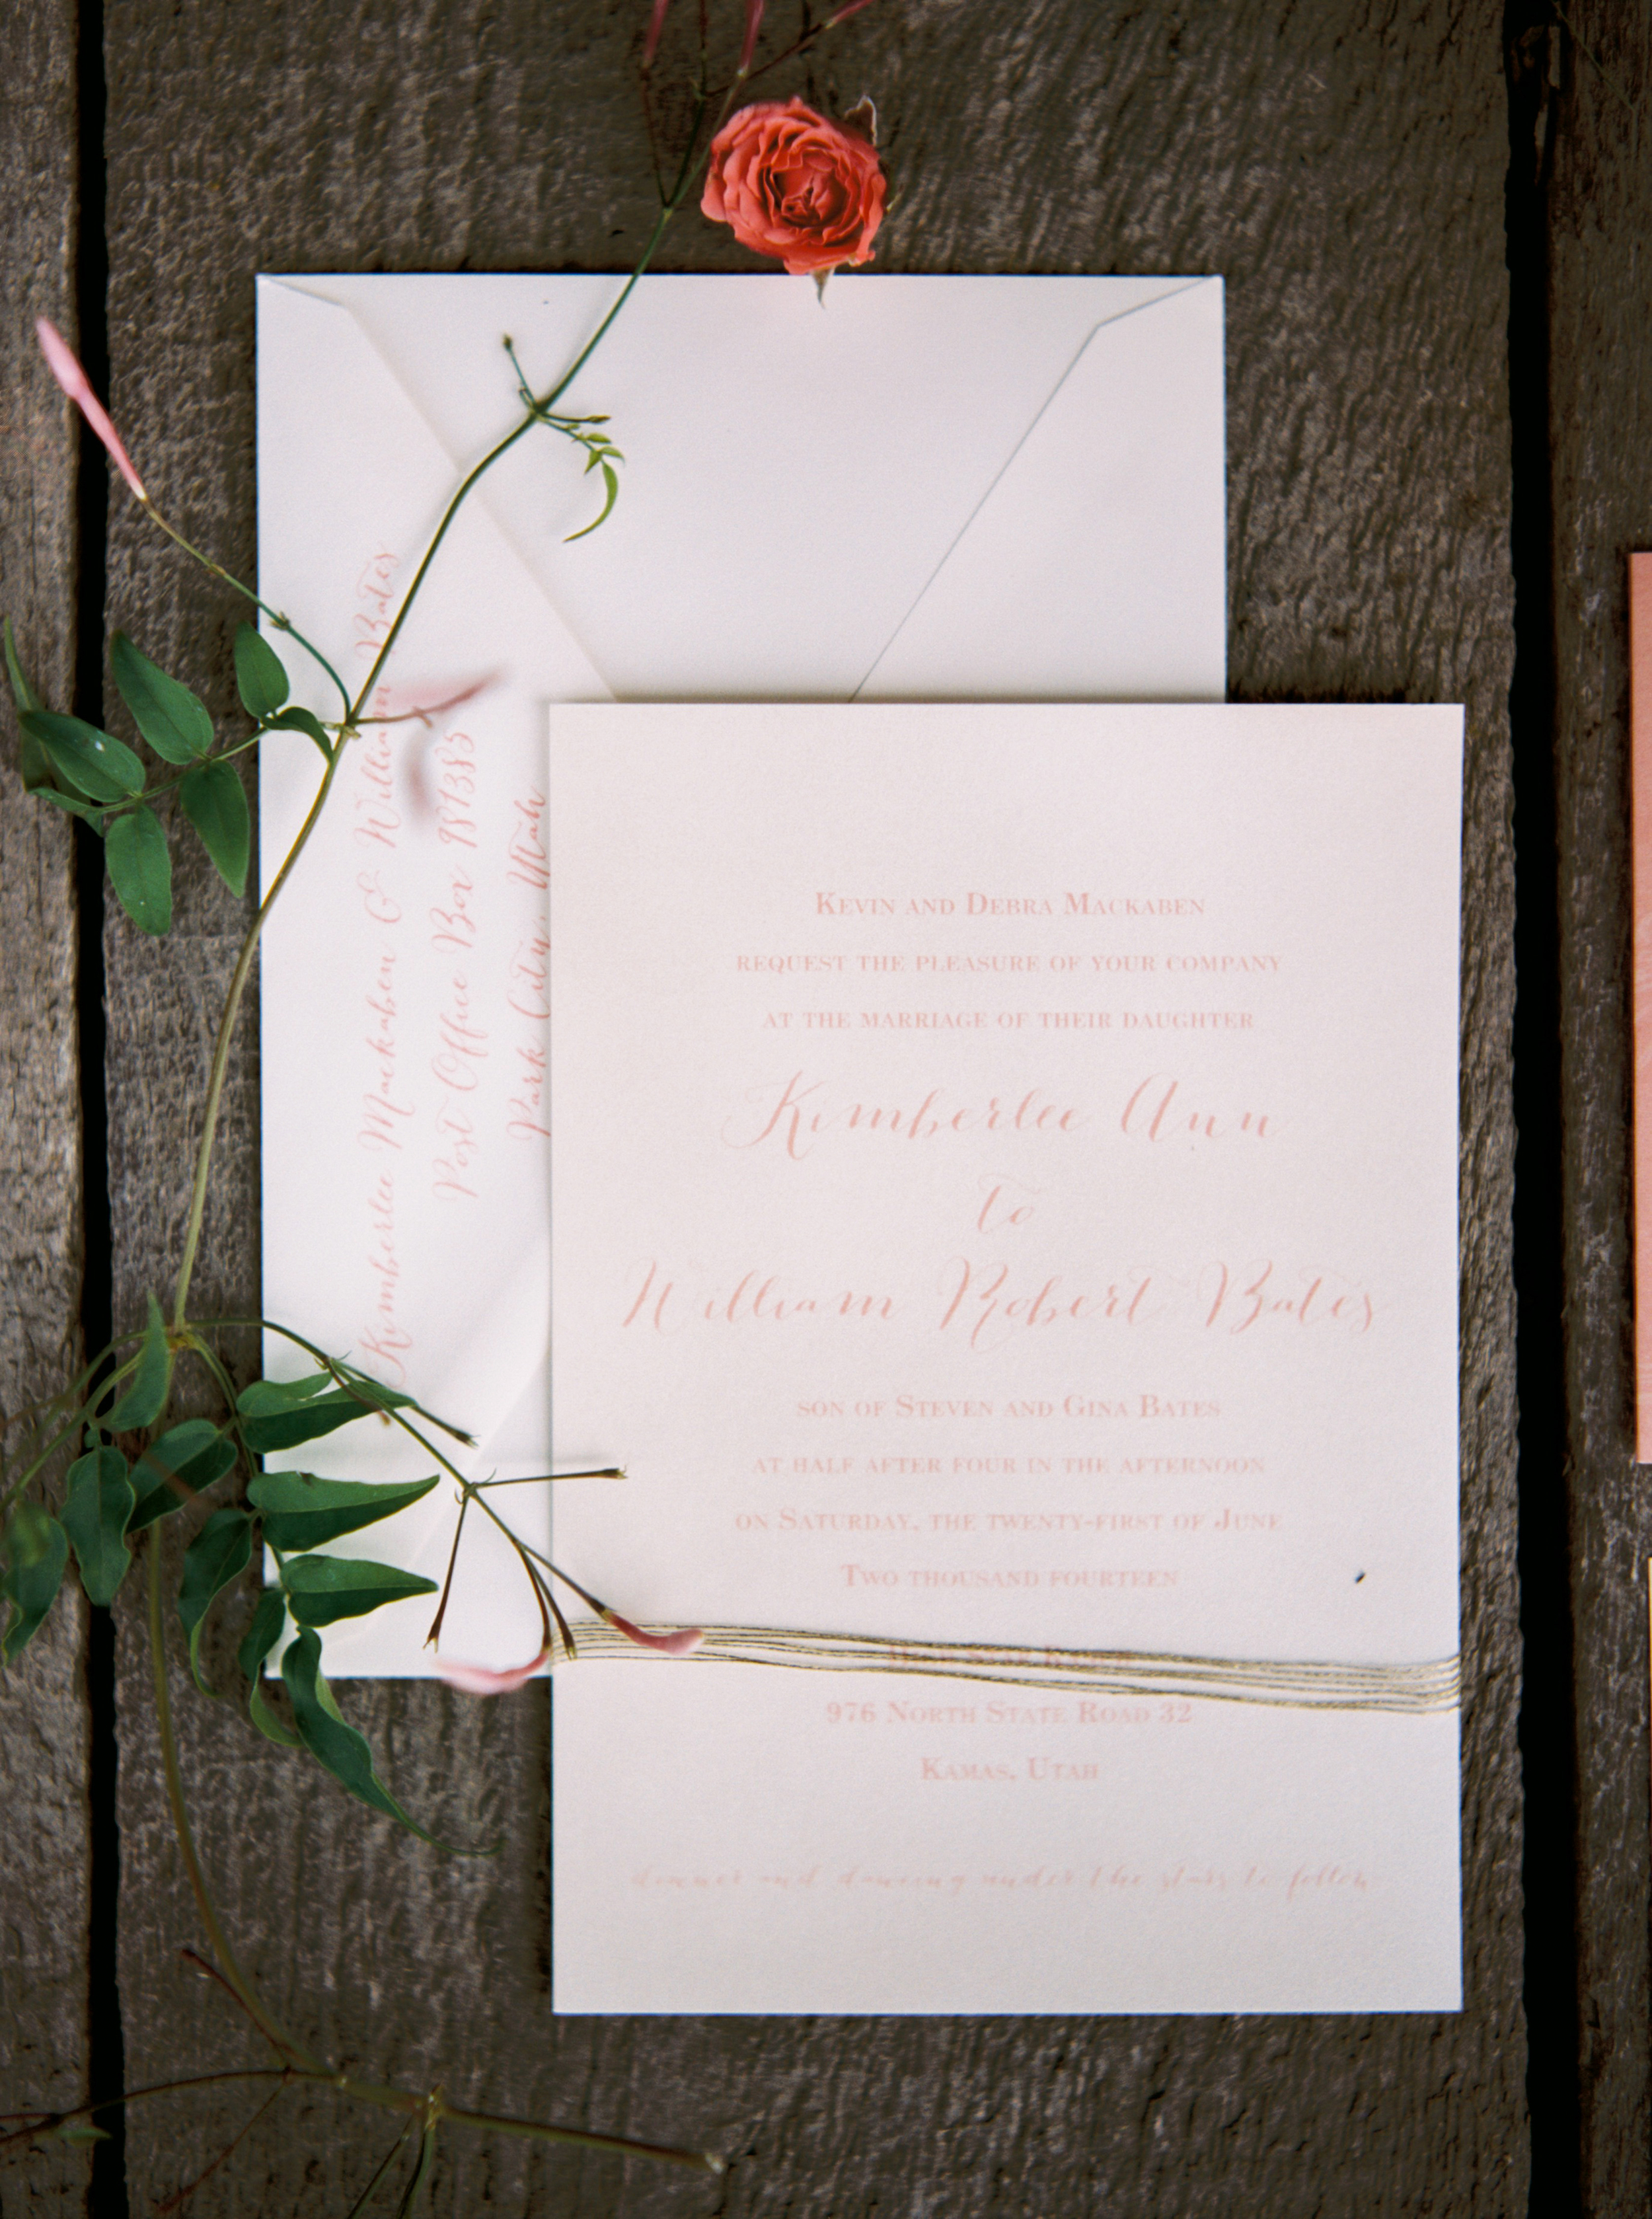 Kimberlee Mackaben & William Bates
Post Office Box 981385
Park City, Utah
Kevin and Debra Mackaben
request the pleasure of your company
at the marriage of their daughter
Kimberlee Ann
to
William Robert Bates
son of Steven and Gina Bates
at half after four in the afternoon
on Saturday, the twenty-first of June
Two thousand fourteen
976 North State Road 32
Kamas, Utah
dinner and dancing under the stars to follow